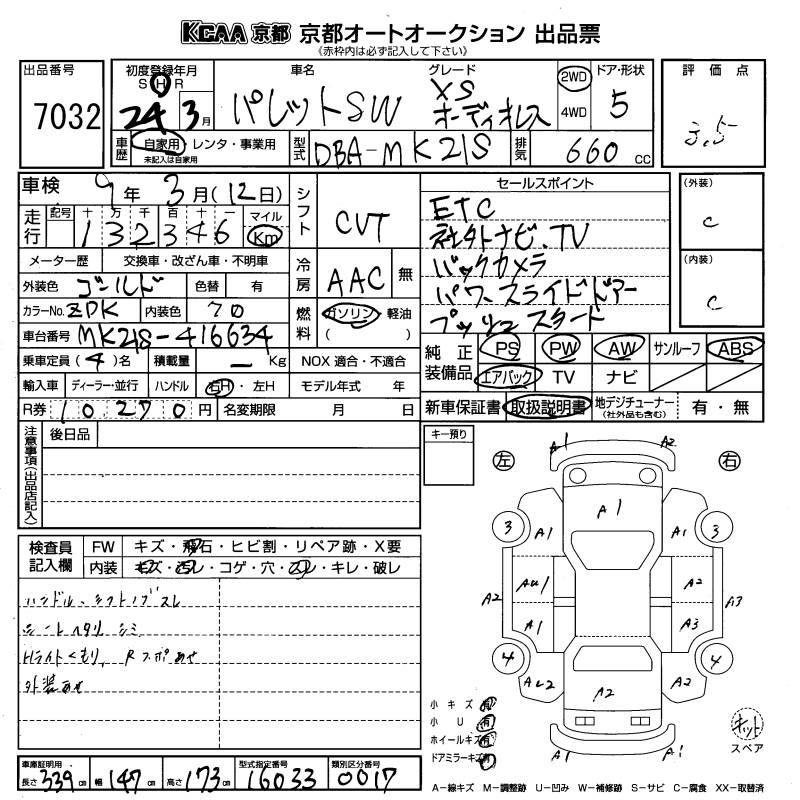 KCAA 京都 京都オートオークション 出品票
(赤枠内は必ず記入して下さい)
出品番号
7032
初度登録年月
S H R
24 3月
車名
パレットSW
グレード
XS
オーディオレス
2WD
4WD
ドア・形状
5
評価点
3.5
車歴
自家用・レンタ・事業用
未記入は自家用
型式
DBA-MK21S
排気
660 CC
車検 9年 3月(12日)
走行
記号 十 万 千 百 十 一 マイル
132346 Km
メーター歴 交換車・改ざん車・不明車
外装色 ゴールド 色替 有
カラーNo. ZDK 内装色 70
車台番号 MK21S-416634
乗車定員(4)名 積載量 — Kg
輸入車 ディーラー・並行 ハンドル 右H・左H
R券 10270円 名変期限 月 日
シフト CVT
冷房 AAC 無
燃料 ガソリン・軽油
( )
NOX 適合・不適合
モデル年式 年
セールスポイント
ETC
社外ナビ.TV
バックカメラ
パワースライドドアー
プッシュスタート
(外装)
C
(内装)
C
純正装備品
PS PW AW サンルーフ ABS
エアバック TV ナビ
新車保証書 取扱説明書 地デジチューナー(社外品も含む) 有・無
注意事項(出品店記入)
後日品
キー預り
検査員記入欄
FW キズ・飛石・ヒビ割・リペア跡・X要
内装 キズ・汚レ・コゲ・穴・スレ・キレ・破レ
ハンドル、シフトノブスレ
シートヘタリ シミ
Hライトくもり, Rスポあせ
外装あせ
左 右
A1 A2
A1
3 A1 A1 3
A2 AU1 A2 A3
A1 A3
4 4
AU2 A2 A2
A1 A1
小キズ 有
小U 有
ホイールキズ 有
ドアミラーキズ 有
キット
スペア
車庫証明用
長さ 339cm 幅 147cm 高さ 173cm
型式指定番号
16033
類別区分番号
0017
A−線キズ M−調整跡 U−凹み W−補修跡 S−サビ C−腐食 XX−取替済